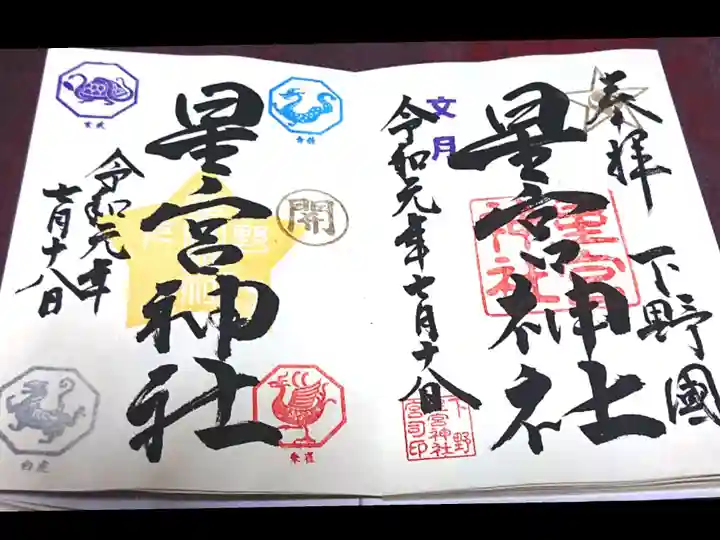 奉拝
下野國
星宮神社
星宮神社
文月
令和元年七月十八日
下野
星宮神社
宮司印
星宮神社
開
令和元年
七月十八日
玄武
青龍
白虎
朱雀